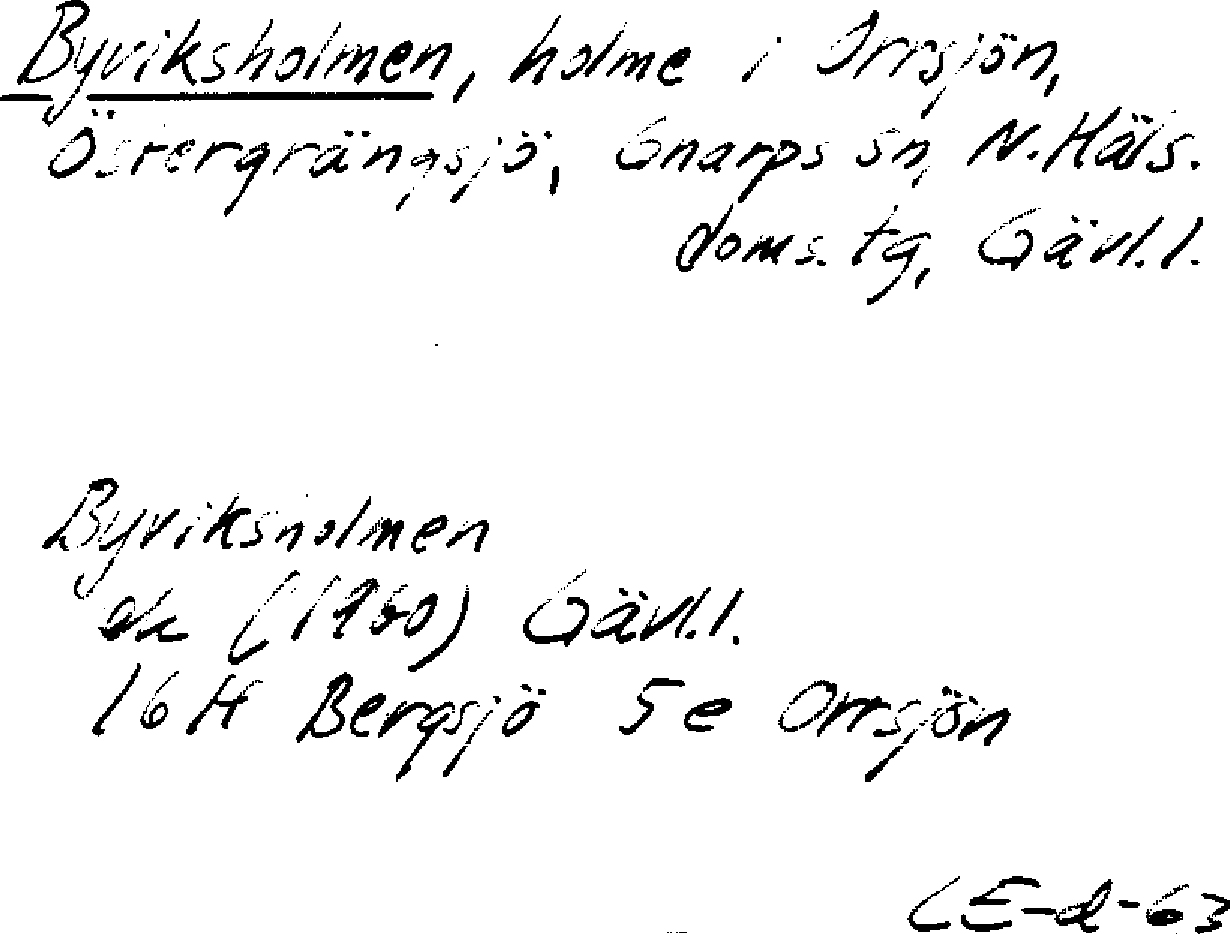 Byviksholmen, holme i Orrsjön,
Östergrängsjö, Gnarps sn, N. Häls.
doms. tg, Gävl. l.
Byviksholmen
ek (1960) Gävl. l.
16 H Bergsjö 5 e Orrsjön
LE-d-63